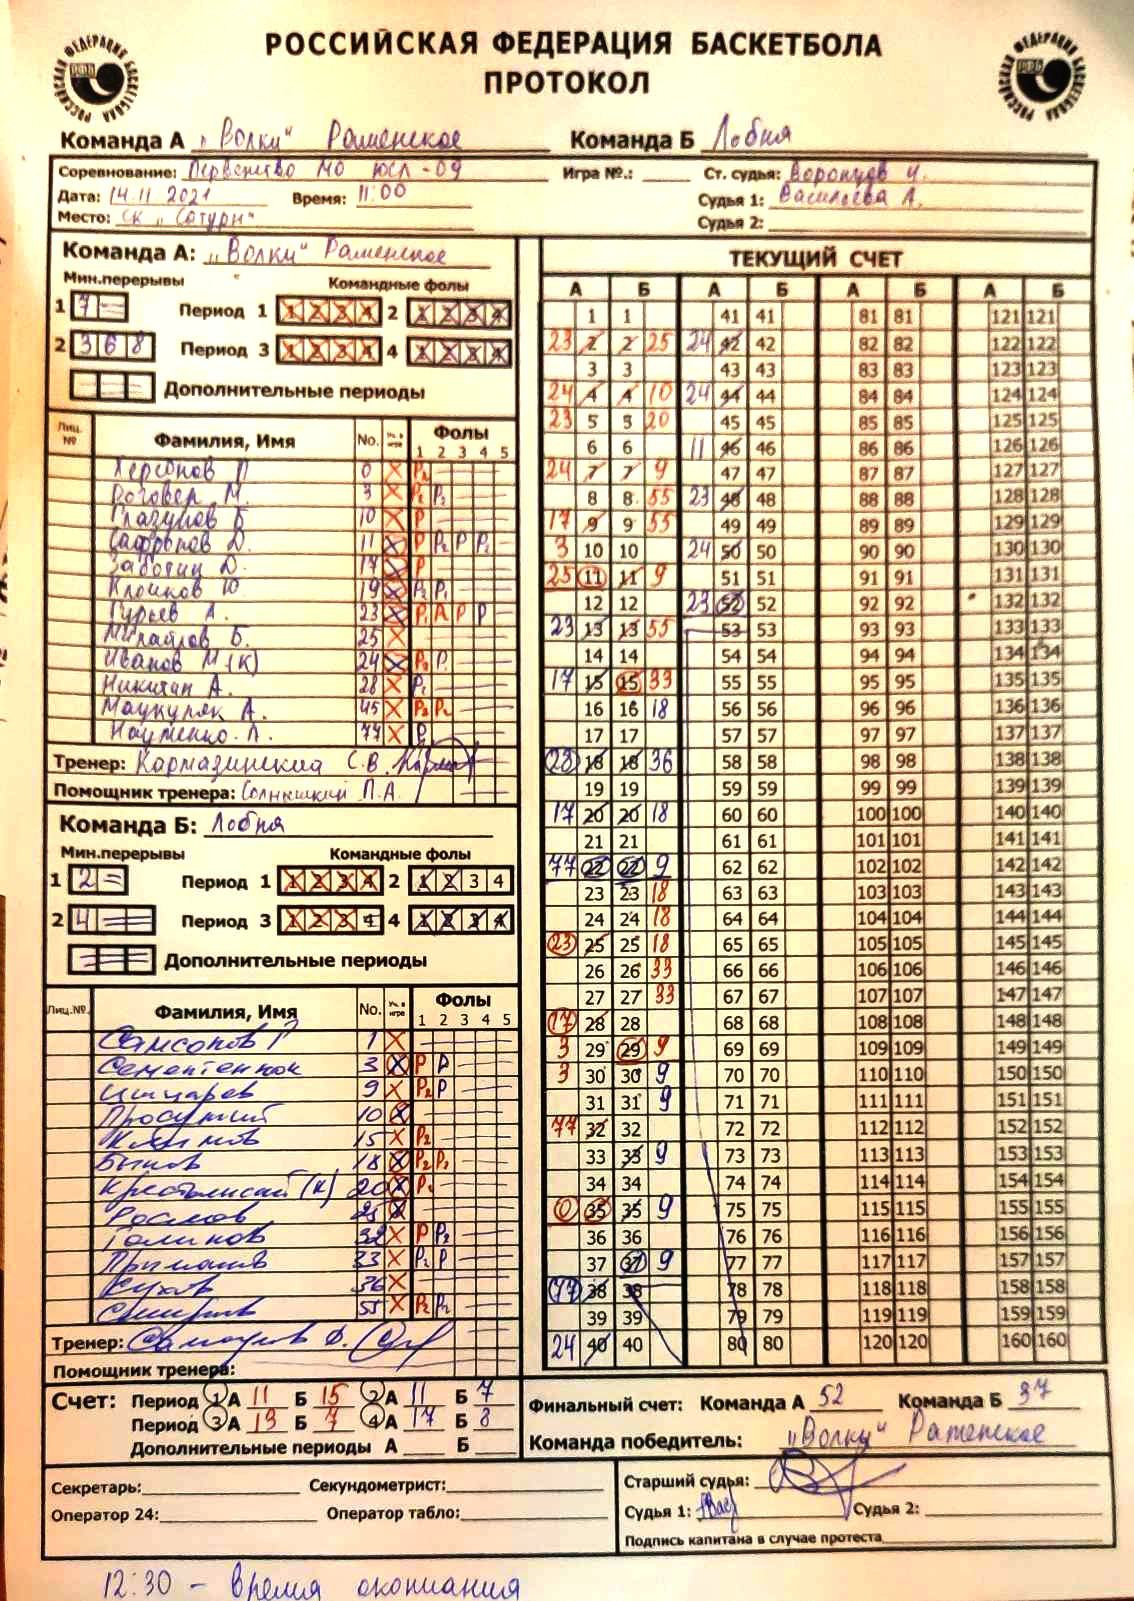 РОССИЙСКАЯ ФЕДЕРАЦИЯ БАСКЕТБОЛА
ПРОТОКОЛ
Команда А „Волки“ Раменское Команда Б Лобня
Соревнование: Первенство МО ЮСЛ-09 Игра №.: Ст. судья: Воронцов И.
Дата: 14.11 2021 Время: 11:00 Судья 1: Васильева А.
Место: СК „Сатурн“ Судья 2:
Команда А: „Волки“ Раменское
Мин.перерывы Командные фолы
1 7 = Период 1 1 2 3 4 2 1 2 3 4
2 3 6 8 Период 3 1 2 3 4 4 1 2 3 4
Дополнительные периоды
Лиц. № Фамилия, Имя No. Уч. в игре Фолы 1 2 3 4 5
0 X P2
Роговец М. 3 X P2 P2
Глазунов Б 10 X P
Сафронов Д. 11 X P P2 P P2
Заботин Д. 17 X P
Клоиков Ю 19 X P2 P1
Гурьев А. 23 X P1 A P P
Михайлов Б. 25 X
Иванов М (К) 24 X P2 P
Никитан А. 28 X P1
Маукуляк А. 45 X P2 P2
Науменко. А. 77 X P
Тренер: Кармазинский С.В.
Помощник тренера: Солнышкин П.А.
Команда Б: Лобня
Мин.перерывы Командные фолы
1 2 = Период 1 1 2 3 4 2 1 2 3 4
2 4 = Период 3 1 2 3 4 4 1 2 3 4
Дополнительные периоды
Лиц.№. Фамилия, Имя No. Уч. в игре Фолы 1 2 3 4 5
Самсонов Р 1 X
Сементенюк 3 X P P
9 X P2 P
10 X
Климов 15 X P2
Быков 18 X P2 P2
(К) 20 X P
25 X
Голиков 32 X P P2
33 X P2 P
36 X
Смирнов 55 X P2 P2
Тренер:
Помощник тренера:
ТЕКУЩИЙ СЧЕТ
А Б А Б А Б А Б
1 1 41 41 81 81 121 121
23 2 2 25 24 42 42 82 82 122 122
3 3 43 43 83 83 123 123
24 4 4 10 24 44 44 84 84 124 124
23 5 5 20 45 45 85 85 125 125
6 6 11 46 46 86 86 126 126
24 7 7 9 47 47 87 87 127 127
8 8 55 23 48 48 88 88 128 128
17 9 9 55 49 49 89 89 129 129
3 10 10 24 50 50 90 90 130 130
25 11 11 9 51 51 91 91 131 131
12 12 23 52 52 92 92 132 132
23 13 13 55 53 53 93 93 133 133
14 14 54 54 94 94 134 134
17 15 15 33 55 55 95 95 135 135
16 16 18 56 56 96 96 136 136
17 17 57 57 97 97 137 137
23 18 18 36 58 58 98 98 138 138
19 19 59 59 99 99 139 139
17 20 20 18 60 60 100 100 140 140
21 21 61 61 101 101 141 141
77 22 22 9 62 62 102 102 142 142
23 23 18 63 63 103 103 143 143
24 24 18 64 64 104 104 144 144
23 25 25 18 65 65 105 105 145 145
26 26 33 66 66 106 106 146 146
27 27 33 67 67 107 107 147 147
17 28 28 68 68 108 108 148 148
3 29 29 9 69 69 109 109 149 149
3 30 30 9 70 70 110 110 150 150
31 31 9 71 71 111 111 151 151
77 32 32 72 72 112 112 152 152
33 33 9 73 73 113 113 153 153
34 34 74 74 114 114 154 154
0 35 35 9 75 75 115 115 155 155
36 36 76 76 116 116 156 156
37 37 9 77 77 117 117 157 157
77 38 38 78 78 118 118 158 158
39 39 79 79 119 119 159 159
24 40 40 80 80 120 120 160 160
Счет: Период 1 А 11 Б 15 2 А 11 Б 7
Период 3 А 13 Б 7 4 А 17 Б 8
Дополнительные периоды А Б
Финальный счет: Команда А 52 Команда Б 37
Команда победитель: „Волки“ Раменское
Секретарь: Секундометрист:
Оператор 24: Оператор табло:
Старший судья:
Судья 1: Судья 2:
Подпись капитана в случае протеста
12:30 - время окончания